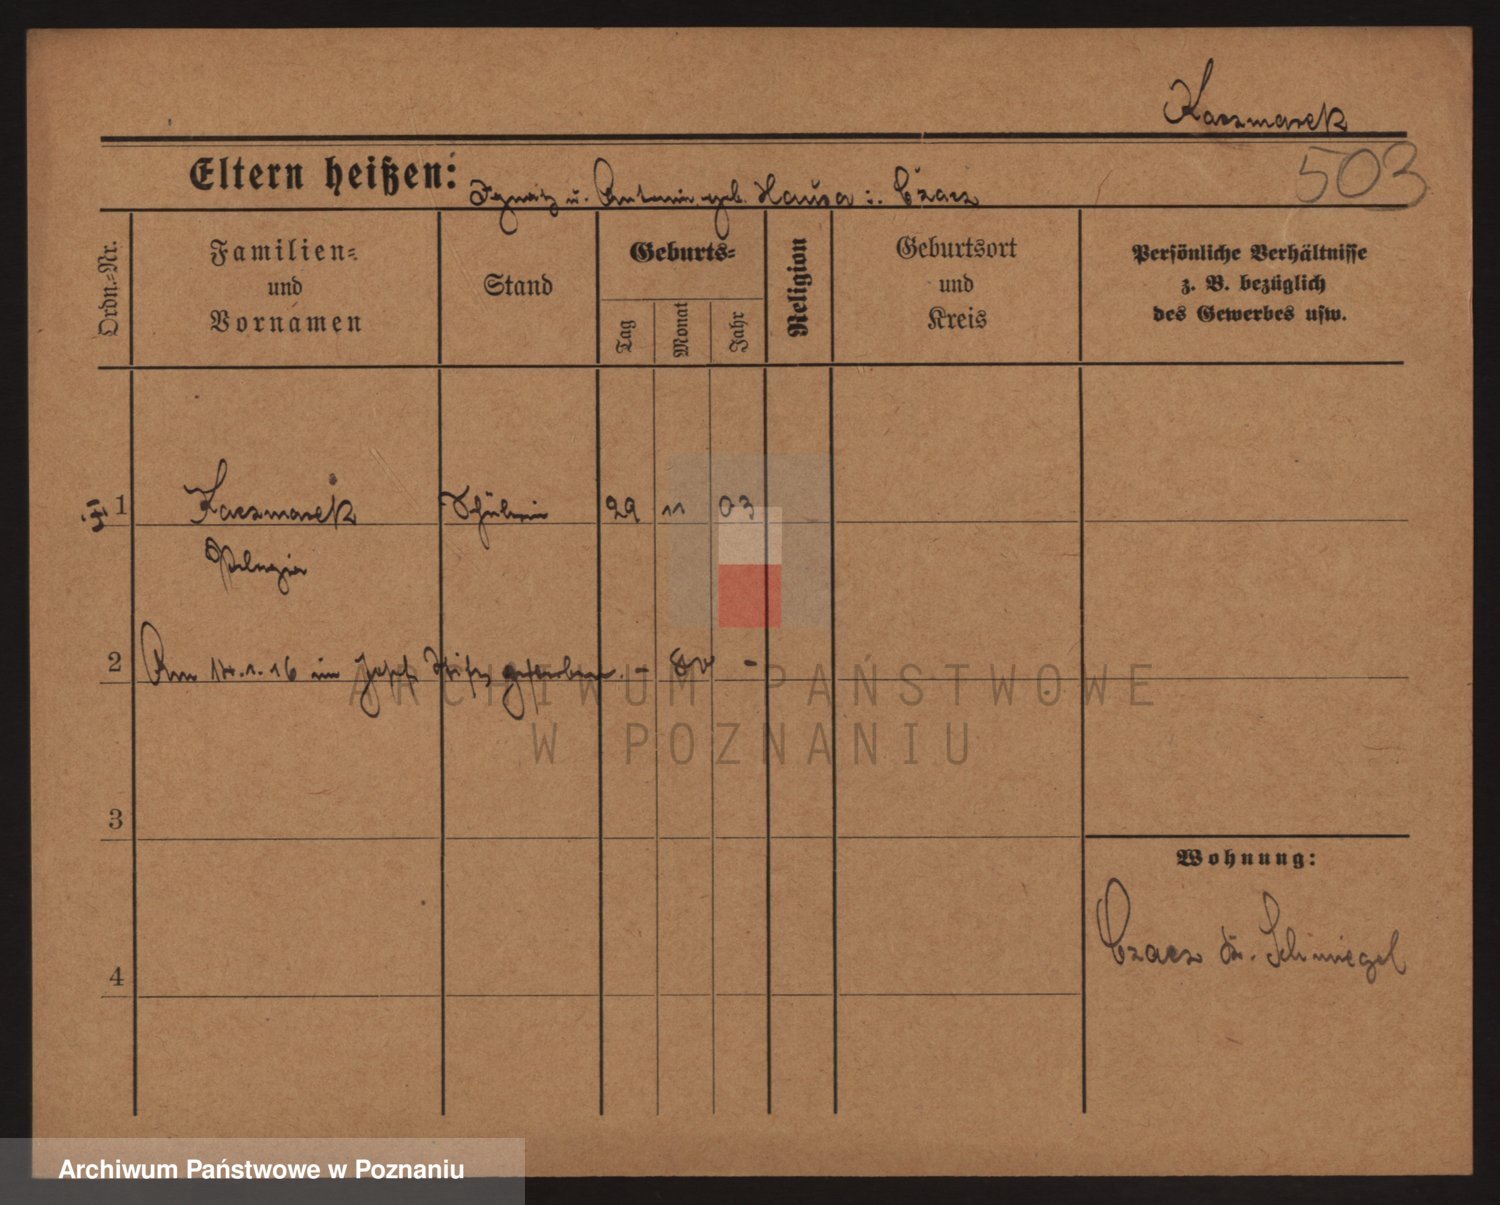 Kaczmarek
503
Eltern heißen: Ignatz u. Antonie geb. Hausa i. Czacz
Ordn.-Nr.
Familien-
und
Vornamen
Stand
Geburts-
Tag
Monat
Jahr
Religion
Geburtsort
und
Kreis
Persönliche Verhältnisse
z. B. bezüglich
des Gewerbes usw.
1 Kaczmarek Schülerin 29 11 03
Pelagia
2 Am 14.1.16 im Josefs Stift gestorben. -
3
4
Wohnung:
Czacz Kr. Schmiegel
ARCHIWUM PAŃSTWOWE
W POZNANIU
Archiwum Państwowe w Poznaniu